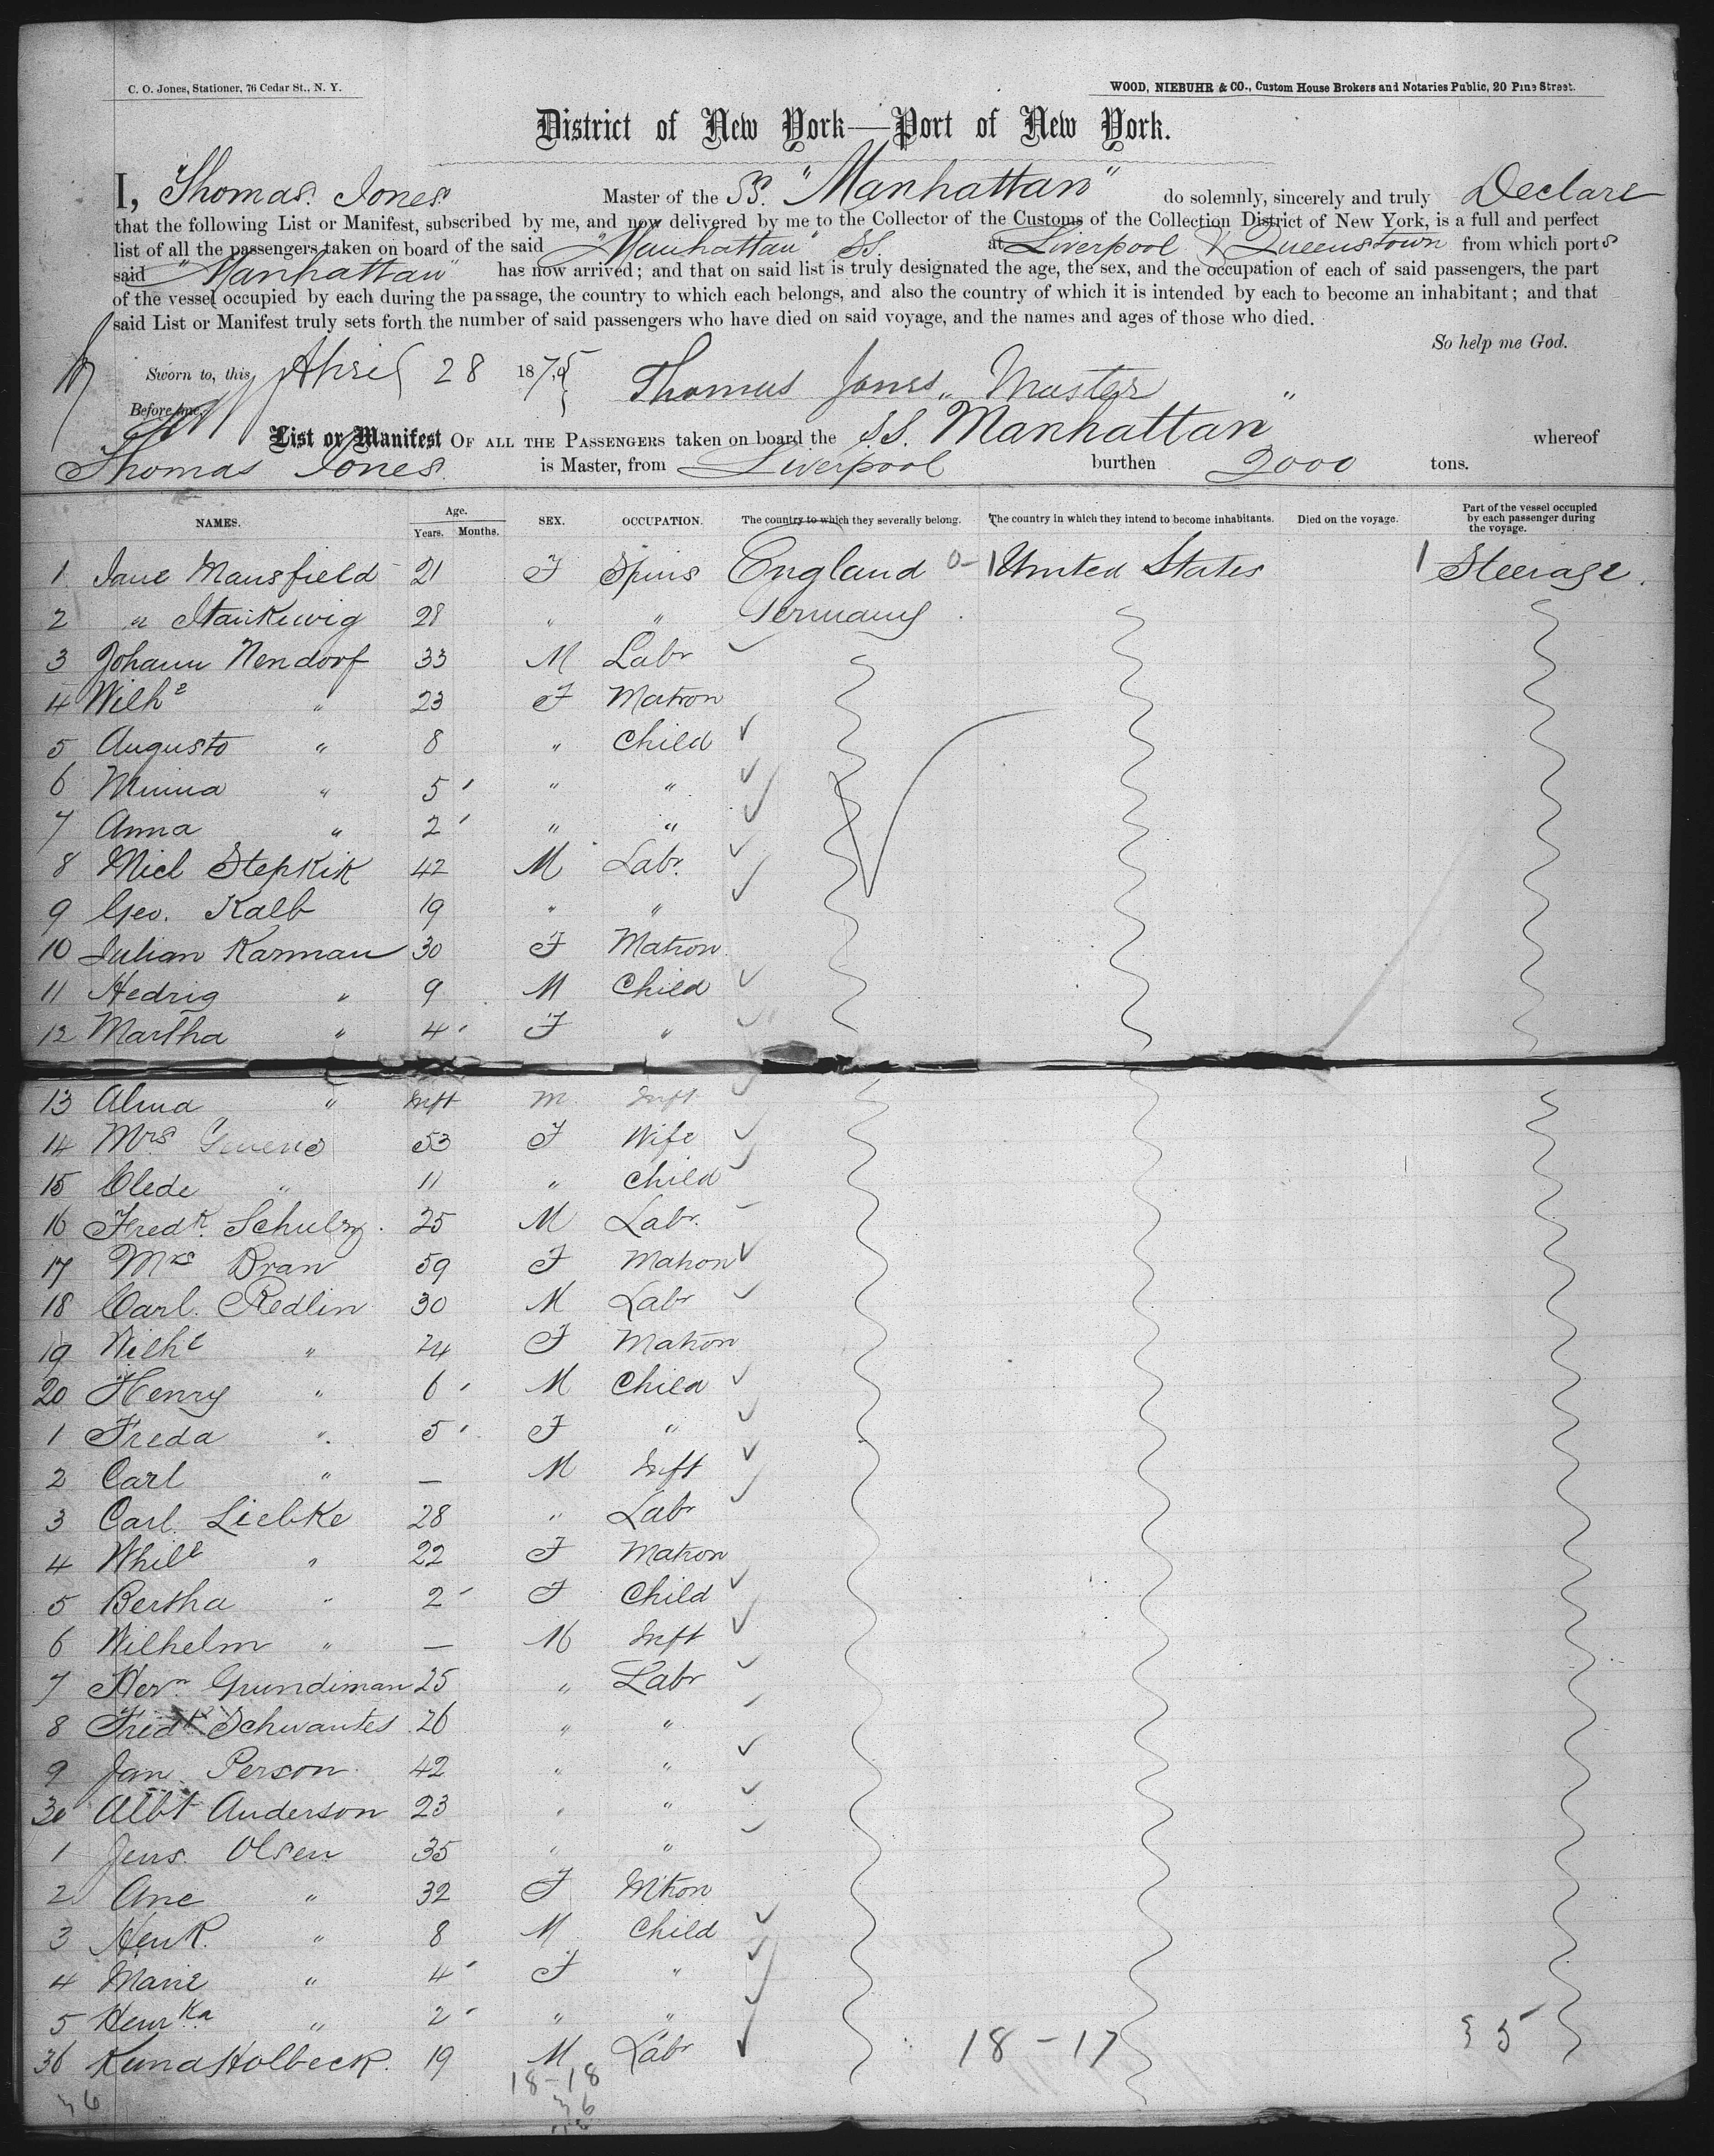 C. O. Jones, Stationer, 76 Cedar St., N. Y.
WOOD, NIEBUHR & CO., Custom House Brokers and Notaries Public, 20 Pine Street.
District of New York—Port of New York.
I, Thomas Jones Master of the SS. "Manhattan" do solemnly, sincerely and truly Declare
that the following List or Manifest, subscribed by me, and now delivered by me to the Collector of the Customs of the Collection District of New York, is a full and perfect
list of all the passengers taken on board of the said "Manhattan" SS. at Liverpool & Queenstown from which ports
said "Manhattan" has now arrived; and that on said list is truly designated the age, the sex, and the occupation of each of said passengers, the part
of the vessel occupied by each during the passage, the country to which each belongs, and also the country of which it is intended by each to become an inhabitant; and that
said List or Manifest truly sets forth the number of said passengers who have died on said voyage, and the names and ages of those who died.
So help me God.
Sworn to, this April 28 1875 Thomas Jones, Master "
Before me,
List or Manifest OF ALL THE PASSENGERS taken on board the S.S. Manhattan whereof
Thomas Jones is Master, from Liverpool burthen 2000 tons.
NAMES. Age. Years. Months. SEX. OCCUPATION. The country to which they severally belong. The country in which they intend to become inhabitants. Died on the voyage. Part of the vessel occupied by each passenger during the voyage.
1 Jane Mansfield 21 F Spins England 0-1 United States 1 Steerage.
2 " Stankewig 28 " " Germany
3 Johann Nendorf 33 M Labr
4 Wilhe " 23 F Matron
5 Augusto " 8 " Child
6 Minna " 5 " "
7 Anna " 2 " "
8 Micl Stepkik 42 M Labr.
9 Geo. Kalb 19 " "
10 Julian Karman 30 F Matron
11 Hedrig " 9 M Child
12 Martha " 4 F "
13 Alma " Inft M. Inft
14 Mrs 53 F Wife
15 Olede " 11 " Child
16 Fredk. Schulz. 25 M Labr.
17 Mrs Bran 59 F Matron
18 Carl. Redlin 30 M Labr
19 Wilhe " 24 F Matron
20 Henry " 6 M Child
1 Freda " 5 F "
2 Carl " — M Inft
3 Carl. Liebke 28 " Labr
4 While " 22 F Matron
5 Bertha " 2 F Child
6 Wilhelm " — M Inft
7 Hern Grundiman 25 " Labr
8 Fredk Schwantes 26 " "
9 Jan Person 42 " "
30 Albt Anderson 23 " "
1 Jens. Olsen 35 " "
2 Ane " 32 F Mtron
3 Henk. " 8 M Child
4 Marie " 4 F "
5 Henrka " 2 " "
36 Kuna Holbeck. 19 M Labr 18-17 35
36 18-18
36